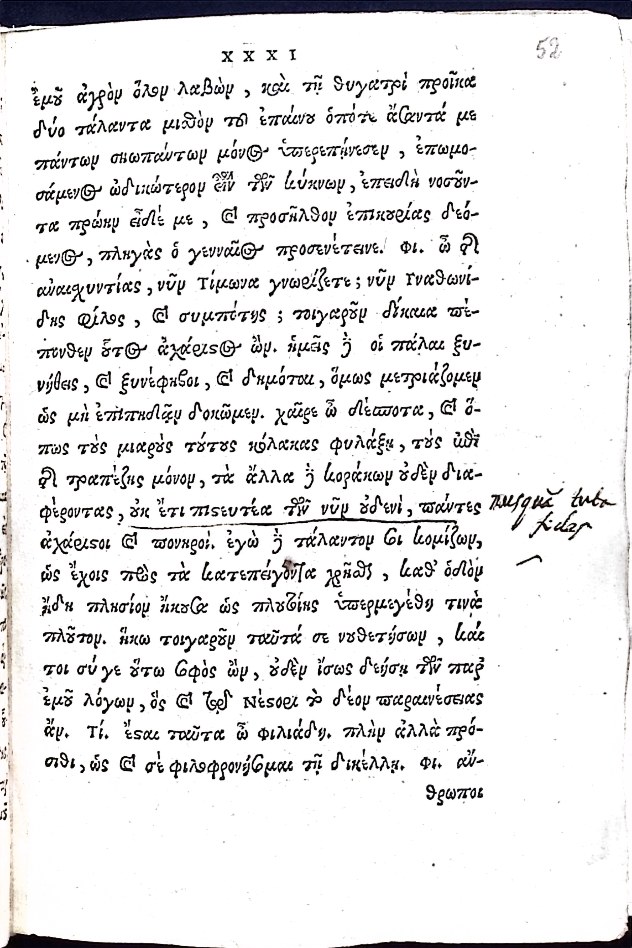 XXXI
52
ἐμοῦ ἀγρὸν ὅλον λαβὼν, καὶ τῇ θυγατρὶ προῖκα
δύο τάλαντα μισθὸν τοῦ ἐπαίνου ὁπότε ᾄσαντά με
πάντων σιωπάντων μόνος ὑπερεπῄνεσεν, ἐπωμο-
σάμενος ᾠδικώτερον εἶναι τῶν κύκνων, ἐπειδὴ νοσοῦν-
τα πρώην εἶδέ με, καὶ προσῆλθον ἐπικουρίας δεό-
μενος, πληγὰς ὁ γενναῖος προσενέτεινε. Φι. ὦ τῆς
ἀναισχυντίας, νῦν Τίμωνα γνωρίζετε; νῦν Γναθωνί-
δης φίλος, καὶ συμπότης; τοιγαροῦν δίκαια πέ-
πονθεν οὕτως ἀχάριστος ὤν. ἡμεῖς δὲ οἱ πάλαι ξυ-
νήθεις, καὶ ξυνέφηβοι, καὶ δημόται, ὅμως μετριάζομεν
ὡς μὴ ἐπιπηδᾶν δοκῶμεν. χαῖρε ὦ δέσποτα, καὶ ὅ-
πως τοὺς μιαροὺς τούτους κόλακας φυλάξῃ, τοὺς ἐπὶ
τῆς τραπέζης μόνον, τὰ ἄλλα δὲ κοράκων οὐδὲν δια-
φέροντας, οὐκ ἔτι πιστευτέα τῶν νῦν οὐδενὶ, πάντες
nusquā tuta
fides
ἀχάριστοι καὶ πονηροί. ἐγὼ δὲ τάλαντόν σοι κομίζων,
ὡς ἔχοις πρὸς τὰ κατεπείγοντα χρῆσθαι, καθ᾽ ὁδὸν
ἤδη πλησίον ἤκουσα ὡς πλουτοίης ὑπερμεγέθη τινὰ
πλοῦτον. ἥκω τοιγαροῦν ταῦτά σε νουθετήσων, καί
τοι σύ γε οὕτω σοφὸς ὢν, οὐδὲν ἴσως δεήσῃ τῶν παρ᾽
ἐμοῦ λόγων, ὃς καὶ τῷ Νέστορι τὸ δέον παραινέσειας
ἄν. Τί. ἔσται ταῦτα ὦ φιλιάδη. πλὴν ἀλλὰ πρό-
σιθι, ὡς καὶ σὲ φιλοφρονήσωμαι τῇ δικέλλῃ. Φι. ἄν-
θρωποι